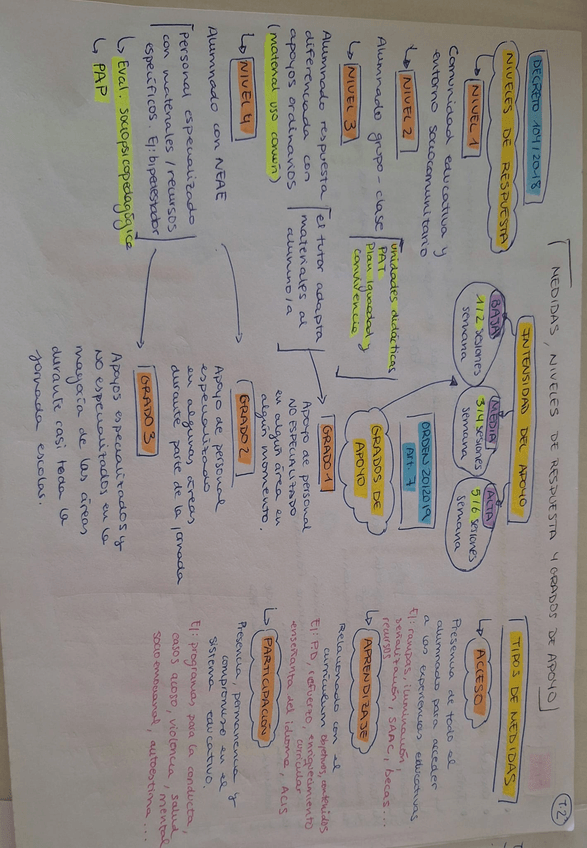 MEDIDAS, NIVELES DE RESPUESTA Y GRADOS DE APOYO
T.2
DECRETO 104/2018
NIVELES DE RESPUESTA
↳ NIVEL 1
Comunidad educativa y
entorno sociocomunitario
↳ NIVEL 2
Alumnado grupo-clase
unidades didácticas
PAT
Plan igualdad y
convivencia
↳ NIVEL 3
Alumnado respuesta
diferenciada con
apoyos ordinarios
(material uso común)
el tutor adapta
materiales al
alumno/a
↳ NIVEL 4
Alumnado con NEAE
Personal especializado
con materiales/recursos
específicos. Ej: bipedestador
↳ Eval. sociopsicopedagógica
↳ PAP
INTENSIDAD DEL APOYO
BAJA
1/2 sesiones
semana
MEDIA
3/4 sesiones
semana
ALTA
5/6 sesiones
semana
ORDEN 20/2019
Art. 7
GRADOS DE
APOYO
GRADO 1
Apoyo de personal
NO ESPECIALIZADO
en algún área en
algún momento.
GRADO 2
Apoyo de personal
especializado
en algunas áreas
durante parte de la jornada
GRADO 3
Apoyos especializados y
no especializados en la
mayoría de las áreas
durante casi toda la
jornada escolar.
TIPOS DE MEDIDAS
↳ ACCESO
Presencia de todo el
alumnado para acceder
a las experiencias educativas
Ej: rampas, iluminación,
señalización, SAAC, becas...
recursos
↳ APRENDIZAJE
Relacionado con el
currículum objetivos, contenidos
Ej: PD, refuerzo, enriquecimiento
curricular
enseñanza del idioma, ACIS
↳ PARTICIPACIÓN
Presencia, permanencia y
compromiso en el
sistema educativo.
Ej: programas para la conducta,
casos acoso, violencia, salud mental
socioemocional, autoestima...